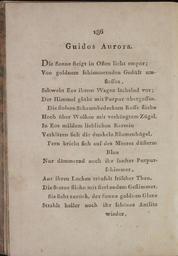 186
Guidos Aurora.
Die Sonne steigt in Osten licht empor;
Von goldnem schimmernden Gedüft um-
flossen,
Schwebt Eos ihrem Wagen lächelnd vor;
Der Himmel glüht mit Purpur übergossen.
Die stolzen Schaumbedeckten Rosse ziehn
Hoch über Wolken mit verhängtem Zügel,
In Eos mildem lieblichen
Verklären sich die dunkeln Blumenhügel.
Fern bricht sich auf des Meeres düsterm
Blau
Nur dämmernd noch ihr sanfter Purpur-
schimmer,
Aus ihren Locken träufelt frischer Thau.
Die Sonne
Sie sieht zurück, der Sonne goldnen Glanz
Strahlt heller noch ihr schönes Antlitz
wieder,